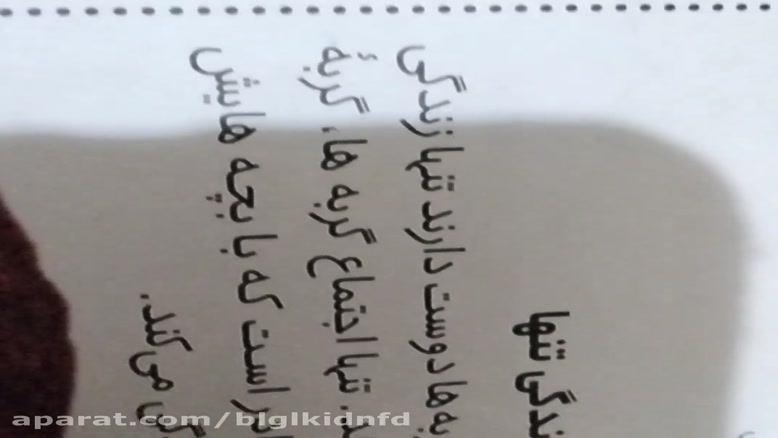 تنها
دوست دارند تنها زندگی
تنها اجتماع گربه ها، گربهٔ
است که با بچه هایش
می کند.
aparat.com/blglkidnfd